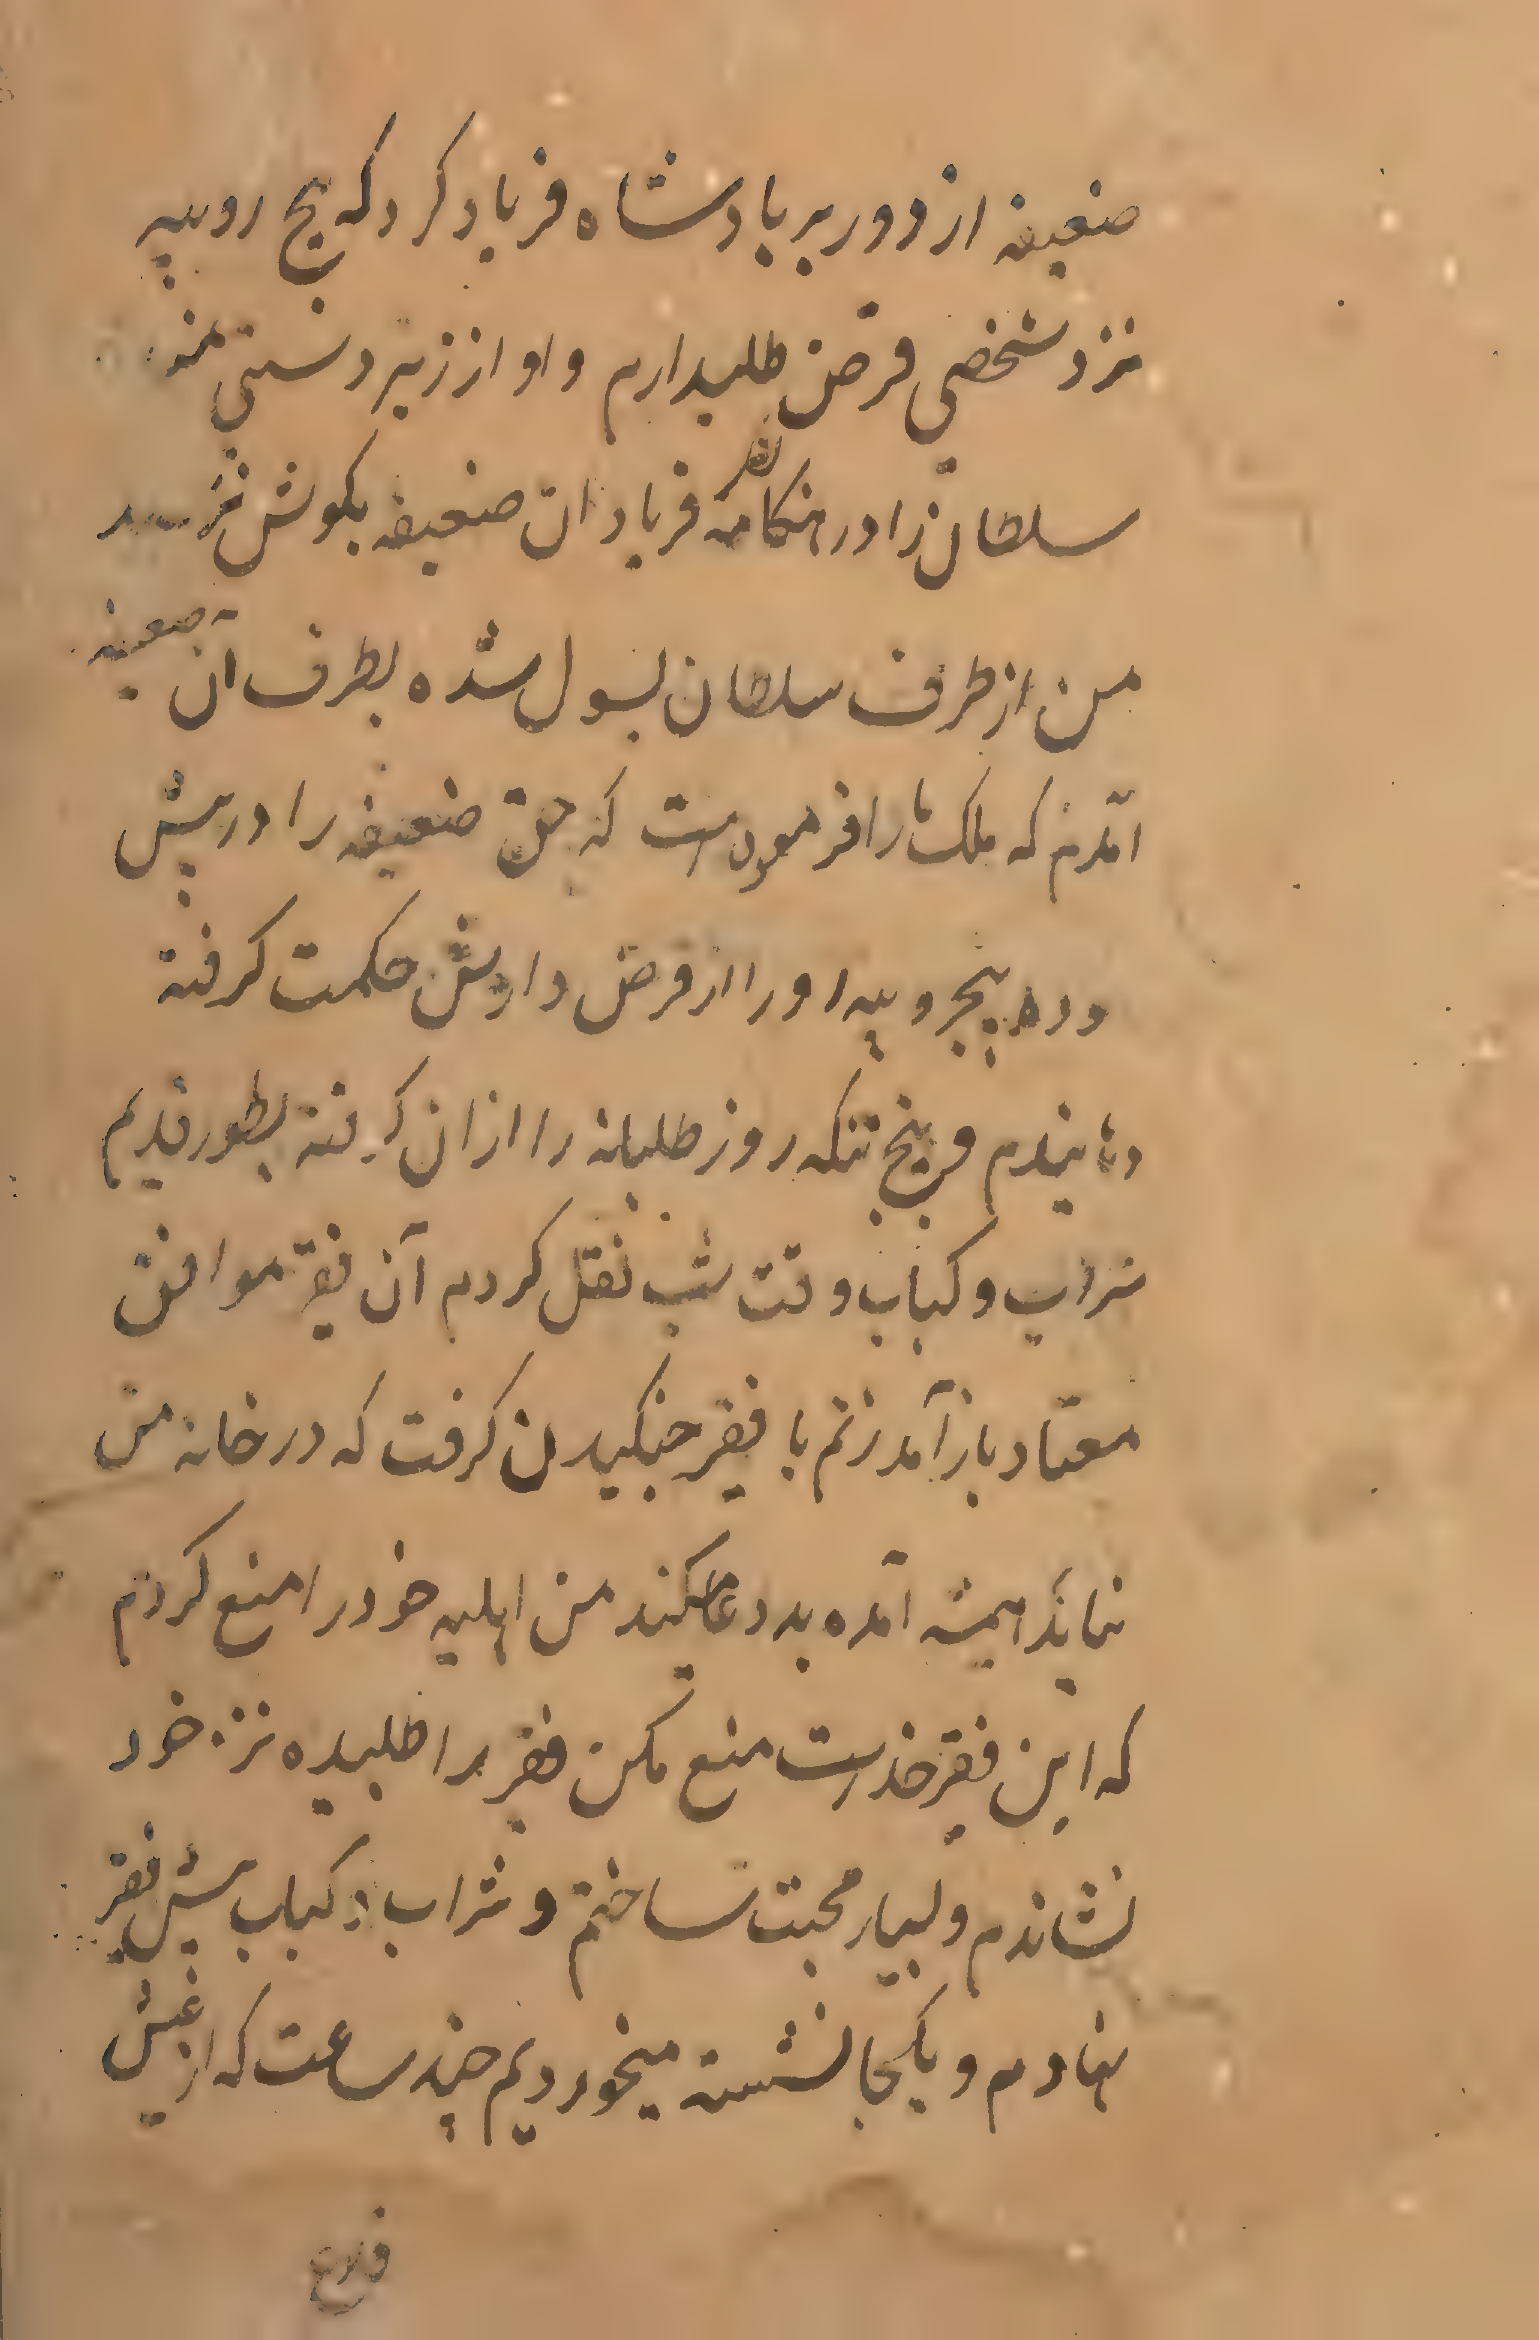 ضعیفه از دور بر بادشاه فریاد کرد که پنج روپیه
نزد شخصی قرض طلبدارم و او از زبردستی
سلطان را در هنکامه نظر فریاد ان ضعیفه بکوش نرسید
من از طرف سلطان بسول شده بطرف آن ضعیفه
آمدم که ملک مارا فرموده است که حق ضعیفه را در پیش
دده پنجروپیه اورا از قرض دارش حکمت کرفته
دهانیدم و پنج تنکه روز طلبانه را ازان کرفته بطور قدیم
شراب و کباب وقت شب نقل کردم آن فقیر موافق
معتاد باز آمد زنم با فقیر جنکیدن کرفت که در خانه من
نیاید همیشه آمده بد دعا میکند من اهلیه خود را منع کردم
که این فقیر خداست منع مکن فقیر را طلبیده نزد خود
نشاندم و بسیار محبت ساختم و شراب و کباب پیش فقیر
نهادم و یکجا نشسته میخوردیم چند ساعت که از عیش
فارغ